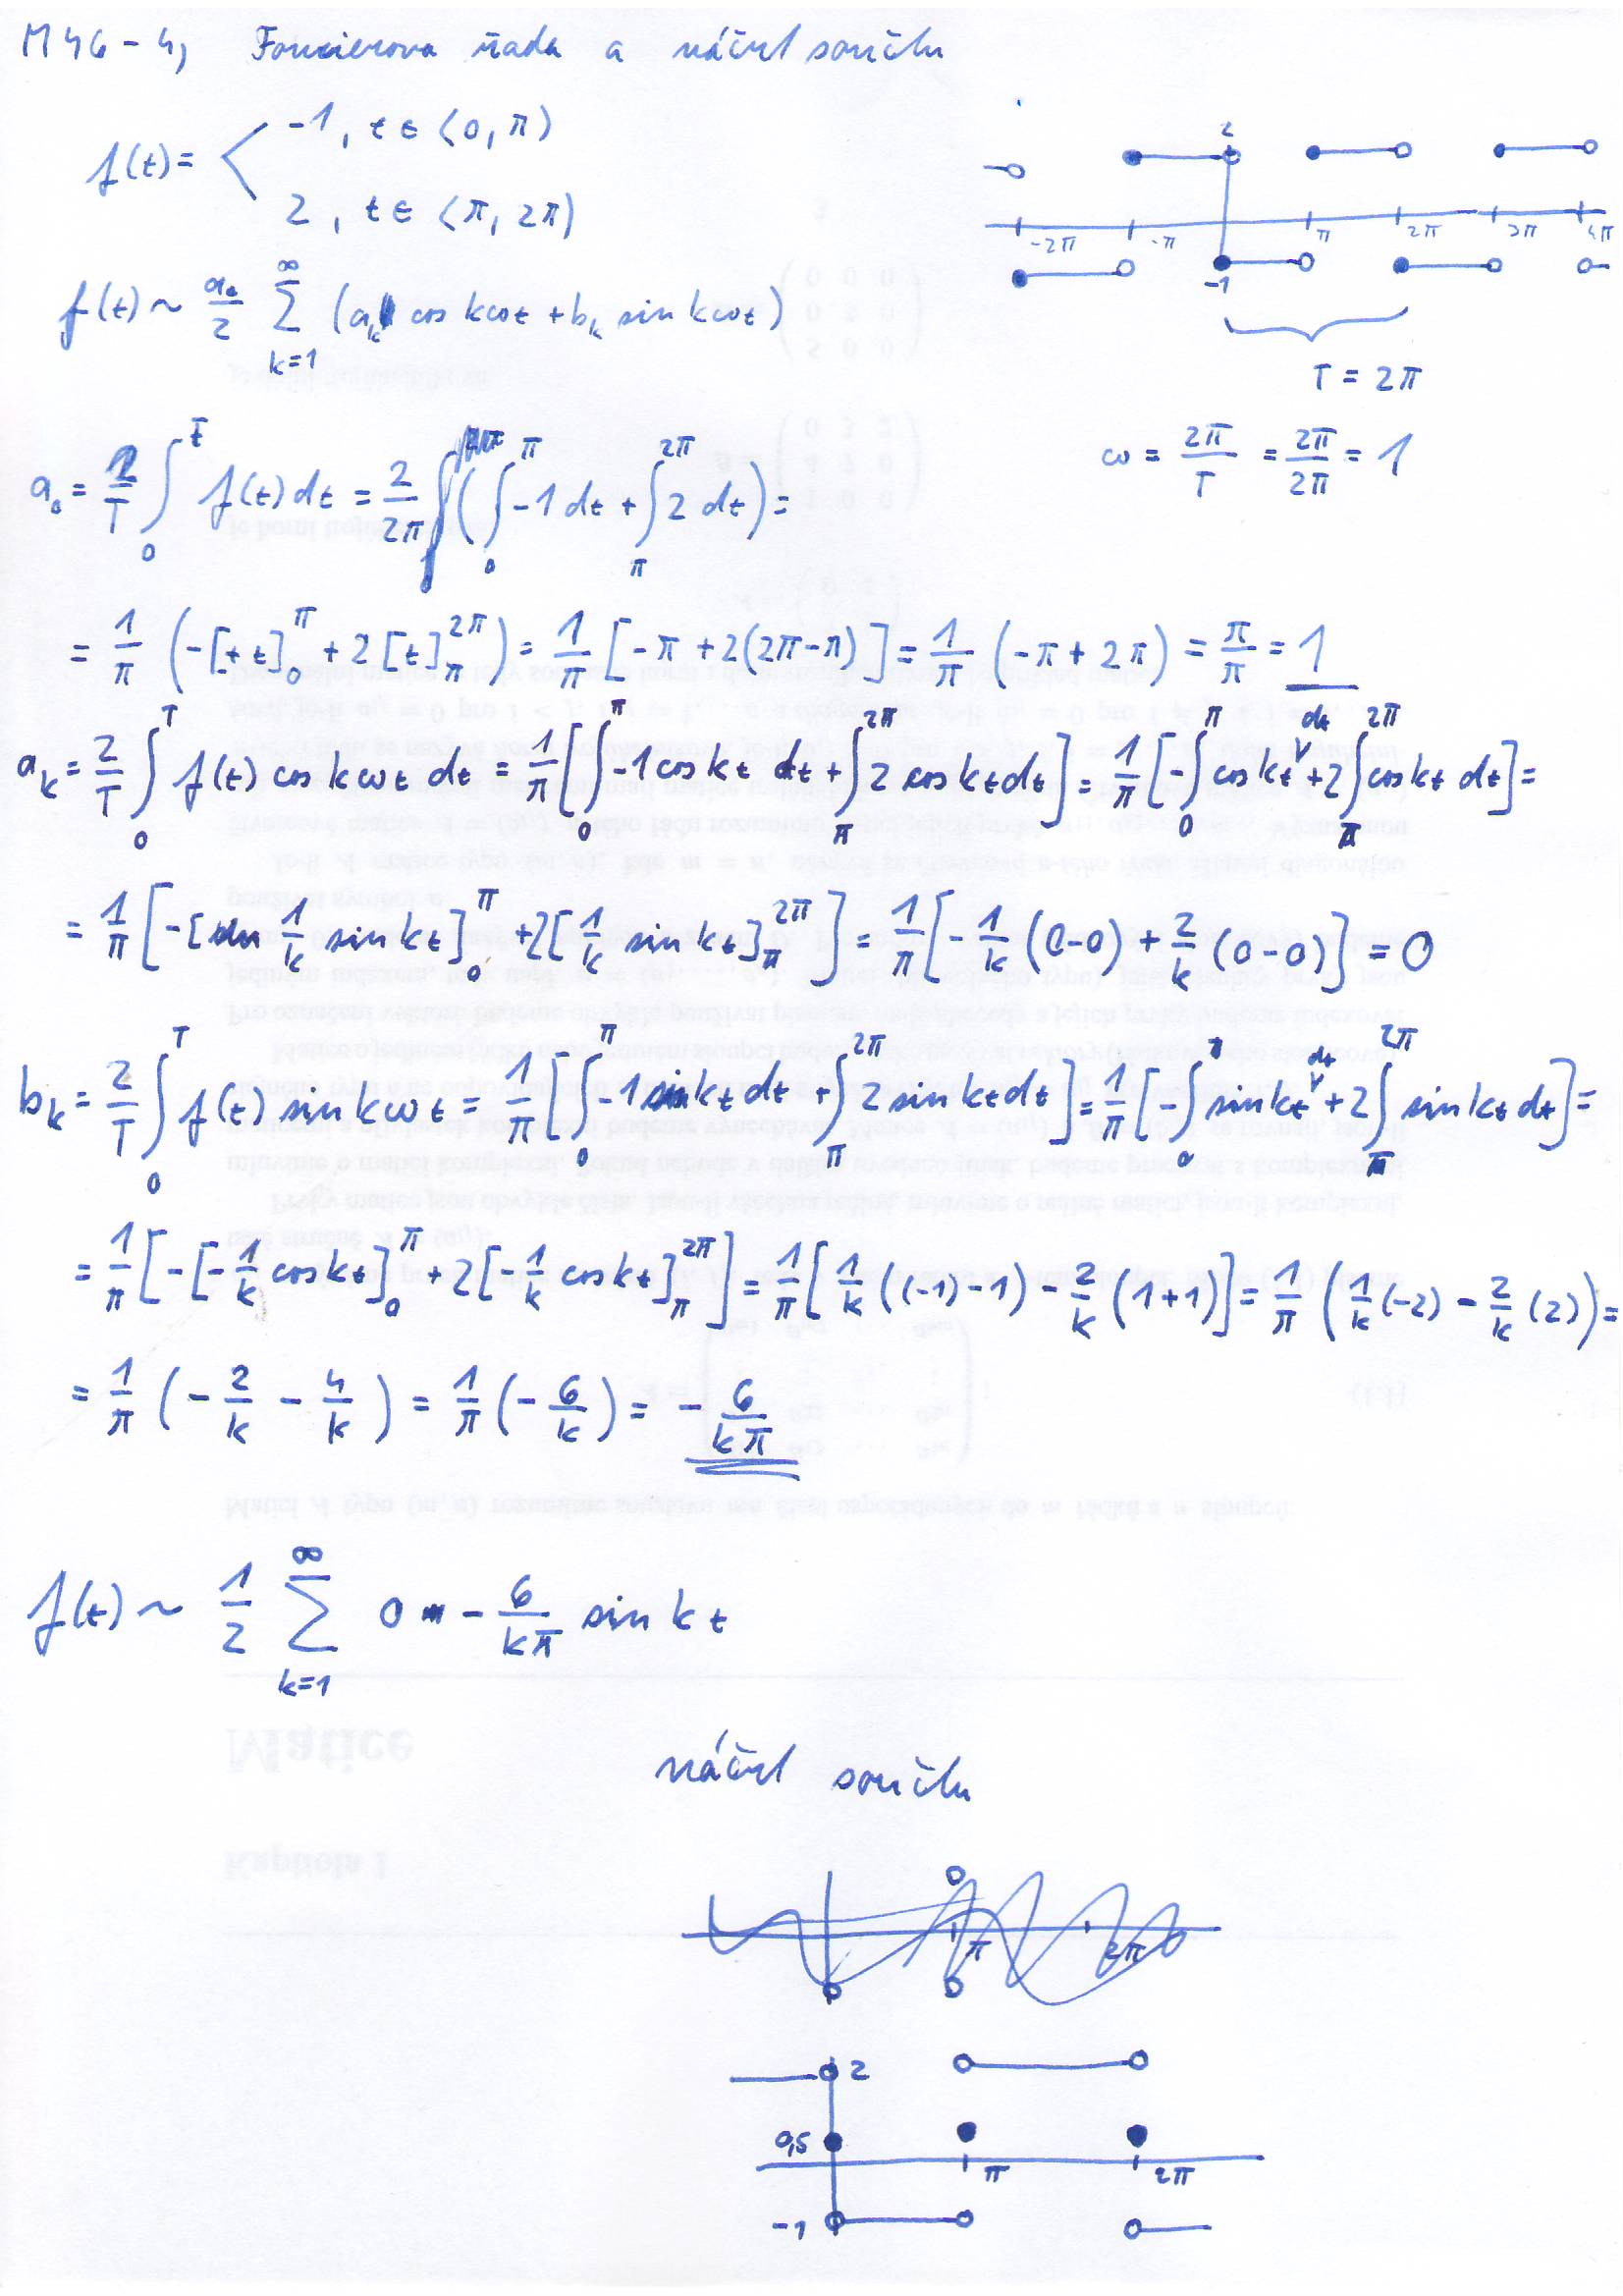 M46-4, Fourierova řada a náčrt součtu
f(t) = < -1, t ∈ ⟨0, π)
2, t ∈ ⟨π, 2π)
2
-2π -π π 2π 3π 4π
-1
T = 2π
f(t) ~ a₀/2 ∑_{k=1}^{∞} (a_k cos kωt + b_k sin kωt)
ω = 2π/T = 2π/2π = 1
a₀ = 2/T ∫_0^T f(t) dt = 2/2π (∫_0^π -1 dt + ∫_π^{2π} 2 dt) =
= 1/π (-[+t]_0^π + 2[t]_π^{2π}) = 1/π [-π + 2(2π-π)] = 1/π (-π + 2π) = π/π = 1
a_k = 2/T ∫_0^T f(t) cos kωt dt = 1/π [∫_0^π -1 cos kt dt + ∫_π^{2π} 2 cos kt dt] = 1/π [-∫_0^π cos kt dt + 2∫_π^{2π} cos kt dt] =
= 1/π [-[1/k sin kt]_0^π + 2[1/k sin kt]_π^{2π}] = 1/π [-1/k (0-0) + 2/k (0-0)] = 0
b_k = 2/T ∫_0^T f(t) sin kωt = 1/π [∫_0^π -1 sin kt dt + ∫_π^{2π} 2 sin kt dt] = 1/π [-∫_0^π sin kt dt + 2∫_π^{2π} sin kt dt] =
= 1/π [-[-1/k cos kt]_0^π + 2[-1/k cos kt]_π^{2π}] = 1/π [1/k ((-1)-1) - 2/k (1+1)] = 1/π (1/k (-2) - 2/k (2)) =
= 1/π (-2/k - 4/k) = 1/π (-6/k) = -6/kπ
f(t) ~ 1/2 ∑_{k=1}^{∞} 0 - 6/kπ sin kt
náčrt součtu
π 2π
2
0,5
π 2π
-1